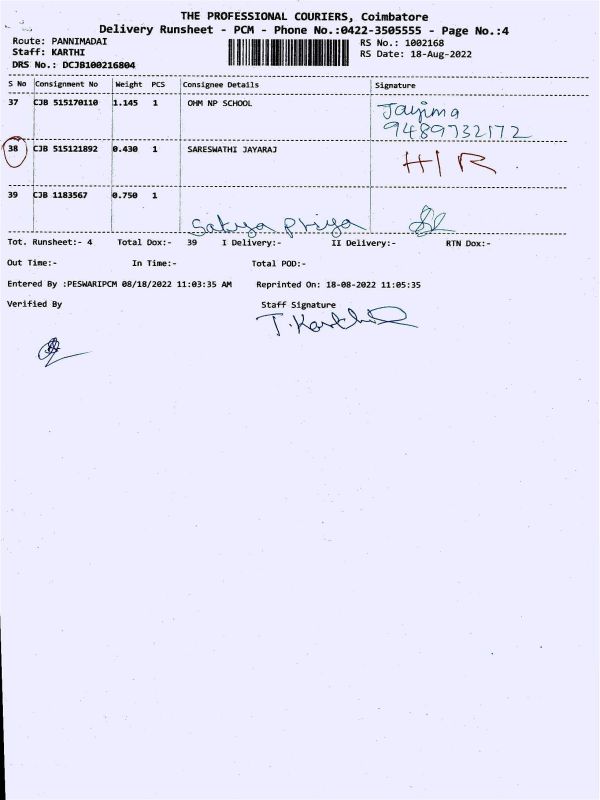 THE PROFESSIONAL COURIERS, Coimbatore
Delivery Runsheet - PCM - Phone No.:0422-3505555 - Page No.:4
Route: PANNIMADAI
RS No.: 1002168
Staff: KARTHI
RS Date: 18-Aug-2022
DRS No.: DCJB100216804
S No Consignment No Weight PCS Consignee Details Signature
37 CJB 515170110 1.145 1 OHM NP SCHOOL Jayima
9489732172
38 CJB 515121892 0.430 1 SARESWATHI JAYARAJ H/R
39 CJB 1183567 0.750 1
Satya Priya
Tot. Runsheet:- 4 Total Dox:- 39 I Delivery:- II Delivery:- RTN Dox:-
Out Time:- In Time:- Total POD:-
Entered By :PESWARIPCM 08/18/2022 11:03:35 AM Reprinted On: 18-08-2022 11:05:35
Verified By Staff Signature
T.Karthik